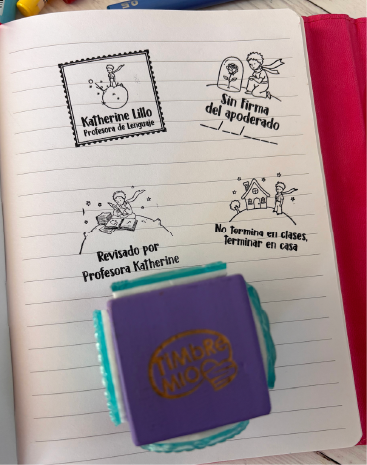 Katherine Lillo
Profesora de Lenguaje
Sin Firma
del apoderado
Revisado por
Profesora Katherine
No termina en clases,
Terminar en casa
TIMBRE
MIO